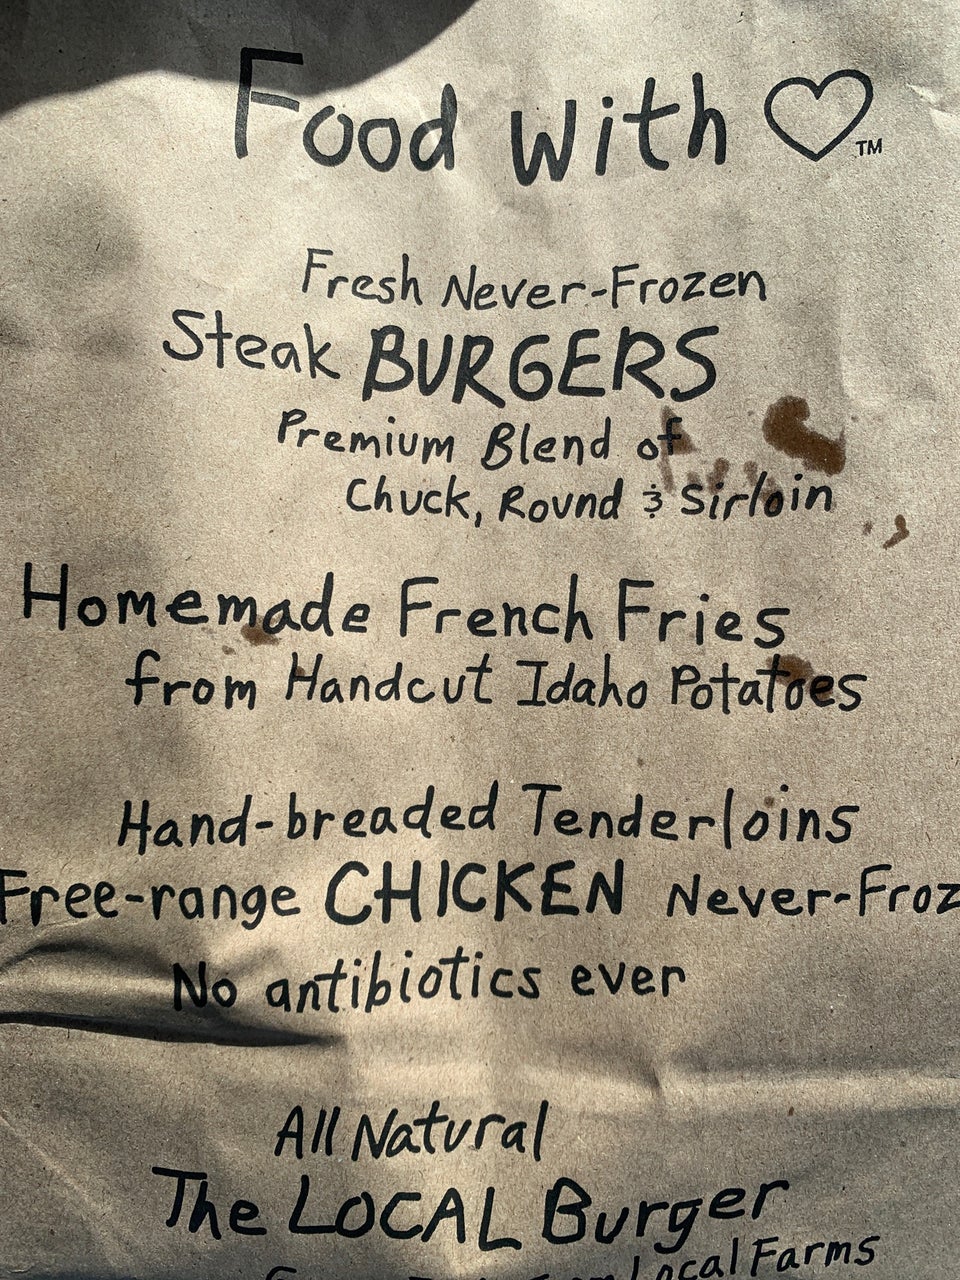 Food with ♡™
Fresh Never-Frozen
Steak BURGERS
Premium Blend of
Chuck, Round & Sirloin
Homemade French Fries
from Handcut Idaho Potatoes
Hand-breaded Tenderloins
Free-range CHICKEN Never-Froz
No antibiotics ever
All Natural
The LOCAL Burger
Local Farms